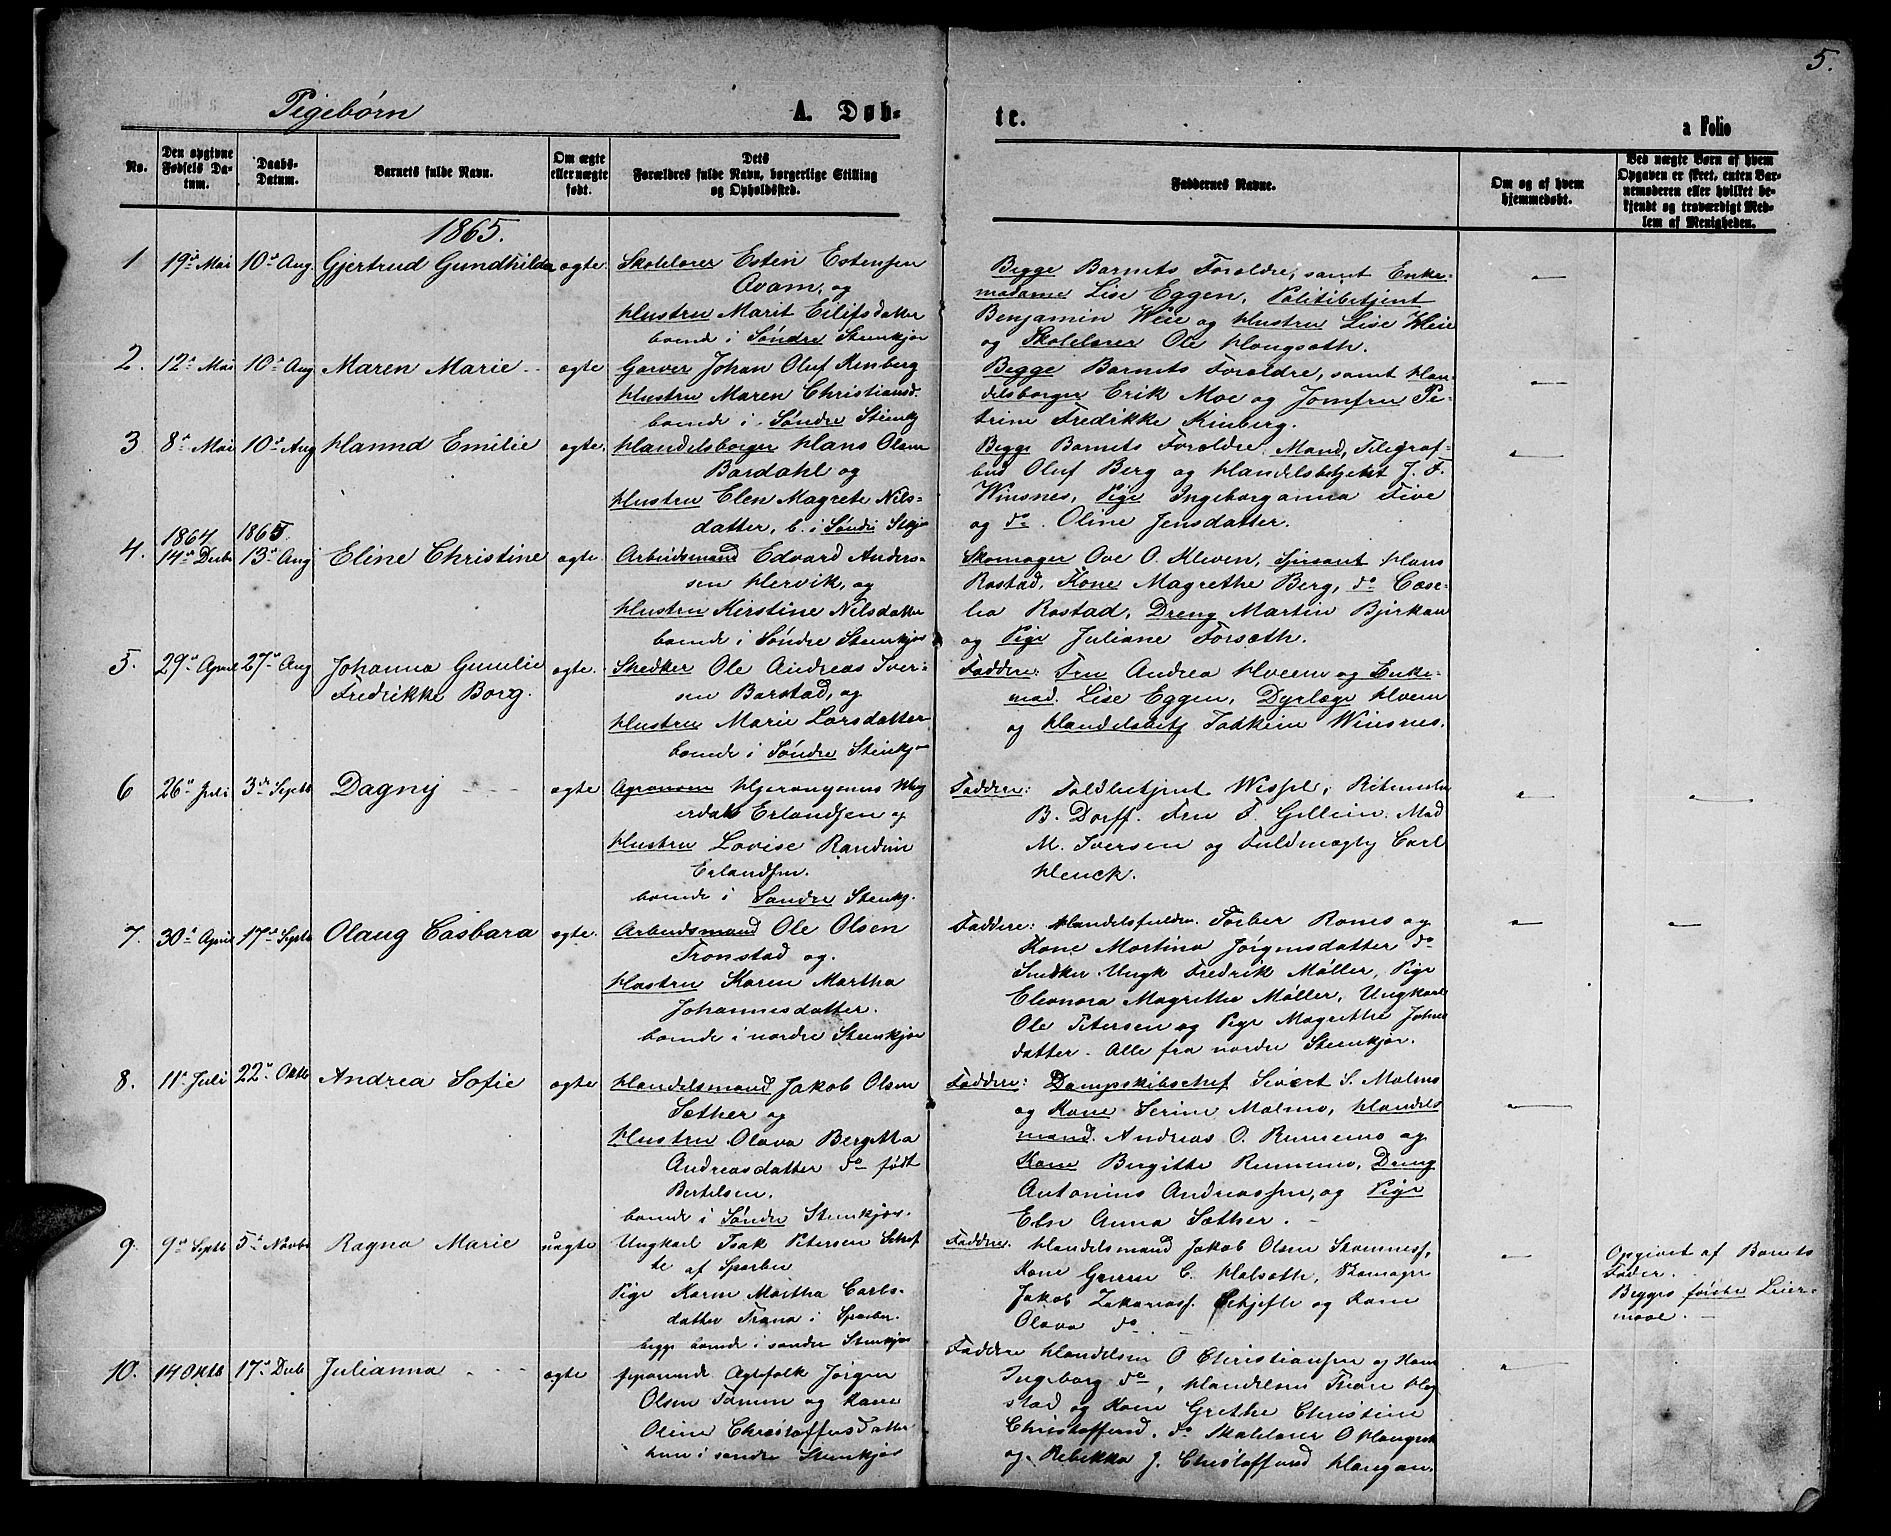 5.
Pigebørn
A. Døb-
te.
a Folio
No.
Den opgivne Fødsels Datum.
Daabs-Datum.
Barnets fulde Navn.
Om ægte eller uægte født.
Dets Forældres fulde Navn, borgerlige Stilling og Opholdssted.
Faddernes Navne.
Om og af hvem hjemmedøbt.
Ved uægte Børn af hvem Opgaven er skeet, enten Barnemoderen eller hvilket bekjendt og troværdigt Medlem af Menigheden.
1865.
1 19de Mai 10de Aug. Gjertrud Gundhilda ægte
Skolelærer Esten Estensen
Qvam, og
Hustru Marit Eilifsdatter
boende i Søndre Steenkjær
Begge Barnets Forældre, samt Enke-
madame Lise Eggen, Politibetjent
Benjamin Weie og Hustru Lise Weie
og Skolelærer Ole Haugsæth.
2. 12de Mai 10de Aug Maren Marie ægte
Garver Johan Oluf Kinberg
Hustru Maren Christiansd.
boende i Søndre Steinkj
Begge Barnets Forældre, samt Han-
delsborger Erik Moe og Jomfru Pe-
trine Fredrikke Kinberg.
3 8de Mai 10de Aug Hanna Emilie ægte.
Handelsborger Hans Olsen
Bardahl og
Hustru Elen Magrete Nils-
datter, b. i Søndre Stkjær
Begge Barnets Forældre. Mand, Telegraf-
bud Oluf Berg og Handelsbetjent J. F.
Winsnes, Pige Ingeborganna Five
og do. Oline Jensdatter.
1864 1865.
4. 14de Decbr 13de Aug Eline Christine ægte
Arbeidsmand Edvard Anders-
sen Hervik, og
Hustru Kirstine Nilsdatter
boende i Søndre Steenkjær
Skomager Ove O. Kleven, Sersant Hans
Rostad, Kone Magrethe Berg, do
Rostad, Dreng Martin Bjerkan
og Pige Juliane Forsæth.
5. 29de April 27de Aug Johanna Gunelie ægte.
Fredrikke Borg.
Snedker Ole Andreas Iver-
sen Barstad, og
Hustru Marie Larsdatter
boende i Søndre Steinkjær
Faddere: Fru Andrea Hveem og Enke-
mad. Lise Eggen, Dyrlæge Hveem
og Handelsbetj Winsnes.
6 26de Juli 3de Septb Dagny ægte
Agronom Hjeronymus
Erlandsen og
Hustru Lovise Randine
Erlandsen.
boende i Søndre Steenkj.
Faddere: Toldbetjent Wessel,
B. Dorff. Fru F. Gellein. Mad
M. Iversen og Fuldmægtg Carl
Henck.
7. 30de April 17de Septb Olaug Casbara ægte.
Arbeidsmand Ole Olsen
Tronstad og.
Hustru Karen Martha
Johannesdatter.
boende i nordre Steenkjær
Faddere: Torber Romes og
Kone Martina Jørgensdatter do
Snedker Ungk Fredrik Møller, Pige
Eleonora Magrethe Møller, Ungkarl
Ole Petersen og Pige Magrethe Johns
datter. Alle fra nordre Steenkjær.
8. 11de Juli 22de Oktb Andrea Sofie ægte
Handelsmand Jakob Olsen
Sæther og
Hustru Olava Bergitha
Andreasdatter do født
Bertelsen.
boende i Søndre Steenkjær.
Faddere: Dampskibschef Sivert S. Malmo
og Kone Serine Malmo, Handels
mand. Andreas O. Rumemo og
Kone Bergitte Rumemo, Dreng
Antonius Andreassen, og Pige
Else Anna Sæther.
9. 9de Septb 5de Novbr Ragna Marie uægte
Ungkarl Isak Petersen
af Sparbu
Pige Karen Martha Carls-
datter Trana i Sparbu.
begge boende i søndre Steenkjær
Faddere. Handelsmand Jakob Olsen
Kone C. Halsæth, Skomager
Jakob Zakariass. og Kone
Olava do
Opgivet af Barnets
Fader.
Begges første Leier-
maal.
10. 14 Oktb 17de Decbr Julianna ægte
Ægtefolk Jørgen
Olsen og Kone
Oline Christoffersdatter
i søndre Steenkjær
Faddere Handelsm O Christiansen og Kone
Ingeborg do, Handelsm
og Kone Grethe Christine
do Skolelærer O
og Rebekka J. Haugan.